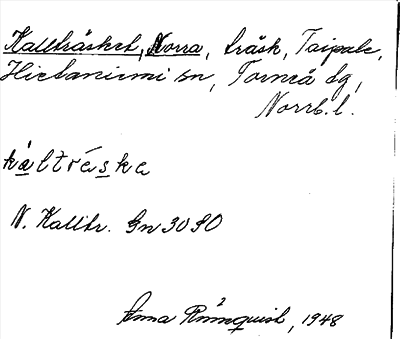 Kallträsket, Norra, träsk, Taipale,
Hietaniemi sn, Torneå dg,
Norrb. l.
kaltrɛ́ska
N. Kalltr. Gn 30 SO
Anna Rönnquist, 1948